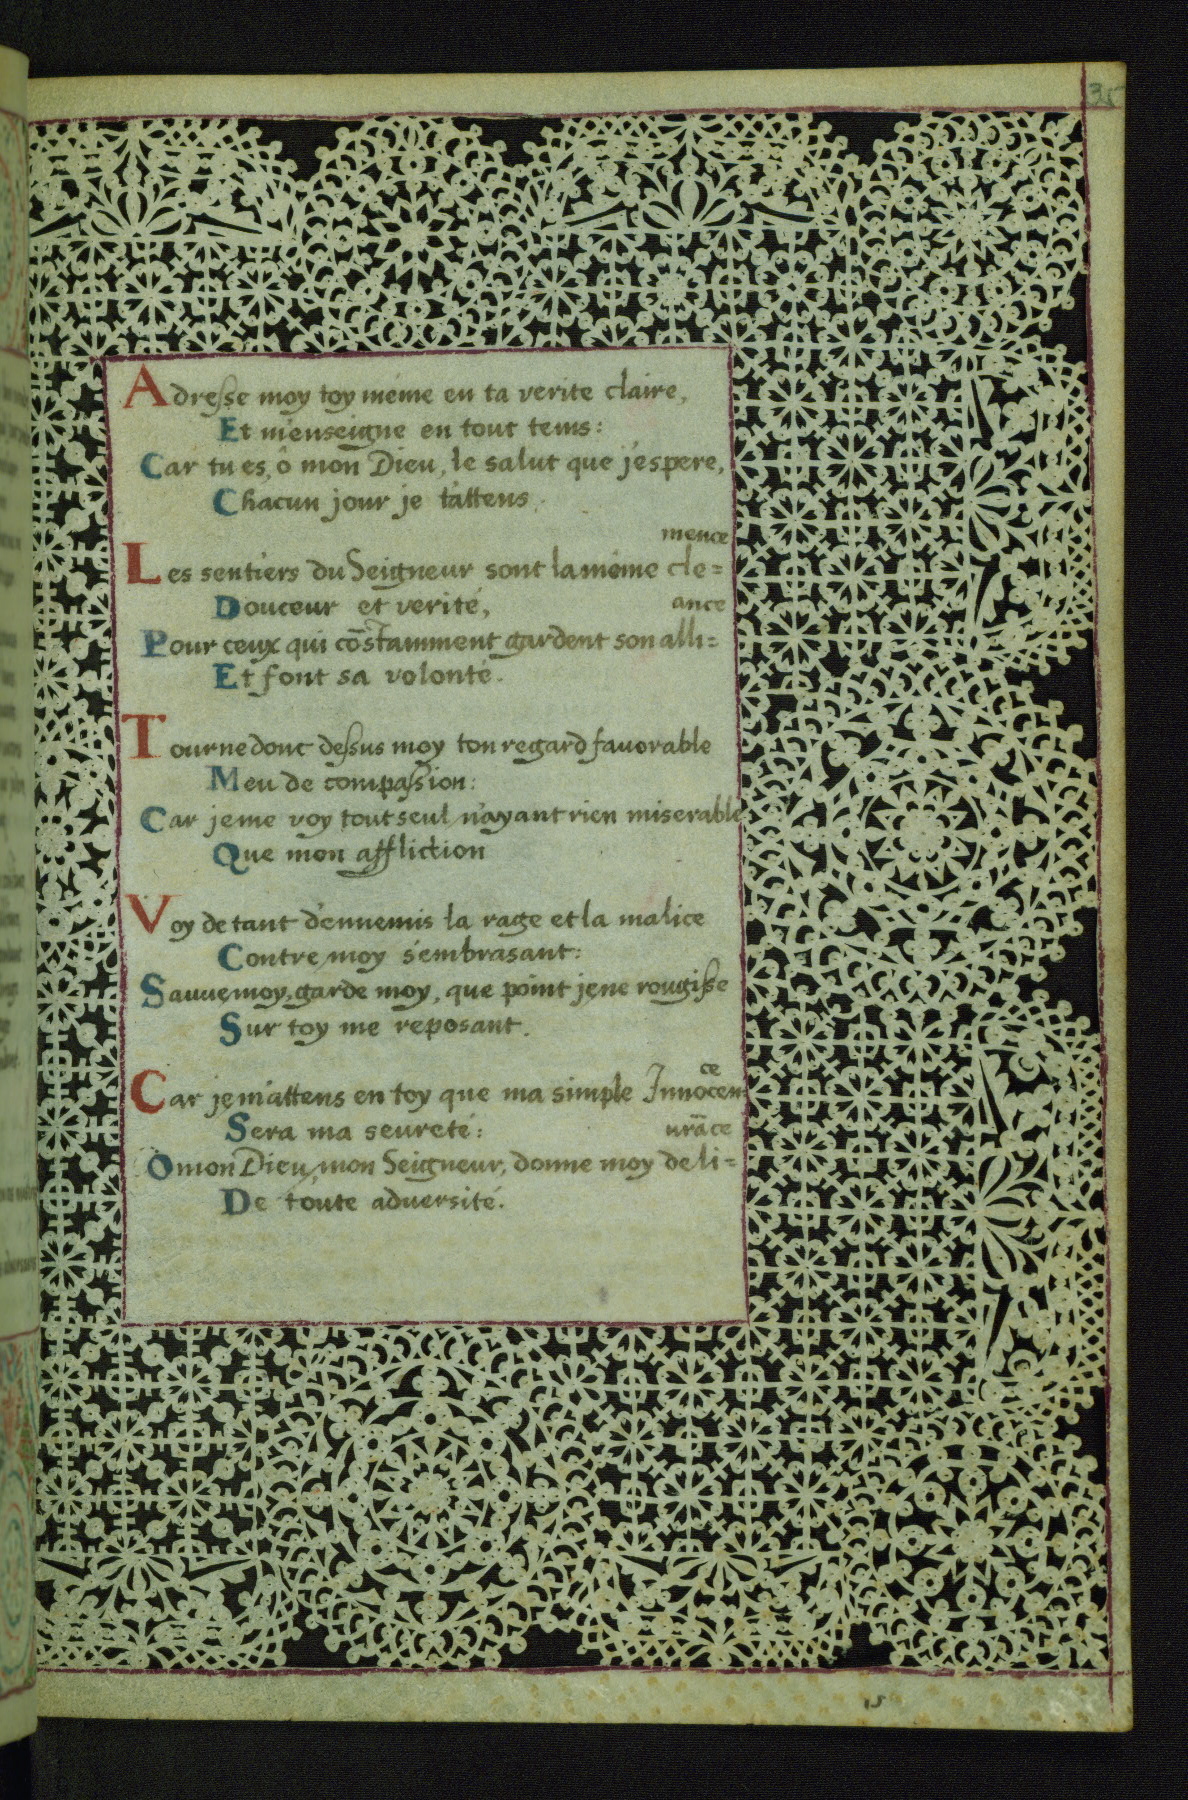 35
Adresse moy toy méme en ta verite claire,
Et m'enseigne en tout tems:
Car tu es, ô mon Dieu, le salut que j'espere,
Chacun jour je t'attens.
mence
Les sentiers du Seigneur sont la méme cle=
Douceur et verité, ance
Pour ceux qui cōstamment gardent son alli=
Et font sa volonté.
Tourne donc dessus moy ton regard favorable
Meu de compassion:
Car je me voy tout seul n'ayant rien miserable
Que mon affliction
Voy de tant d'ennemis la rage et la malice
Contre moy s'embrasant:
Sauve moy, garde moy, que point je ne rougisse
Sur toy me reposant.
ce
Car je m'attens en toy que ma simple Innocen-
Sera ma seureté: urāce
O mon Dieu, mon Seigneur, donne moy deli=
De toute adversité.
15